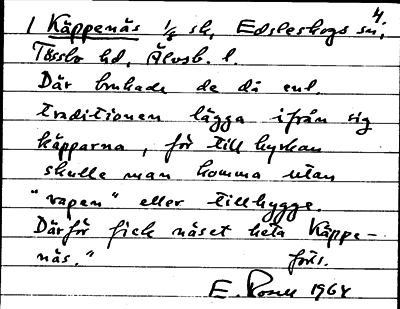 4.
1 Käppenäs 1/8 sk, Edsleskogs sn,
Tössbo hd, Älvsb. l.
Där brukade de då enl.
traditionen lägga ifrån sig
käpparna, för till kyrkan
skulle man komma utan
"vapen" eller tillhygge.
Därför fick näset heta Käppe-
näs."
forts.
E. Rosell 1964